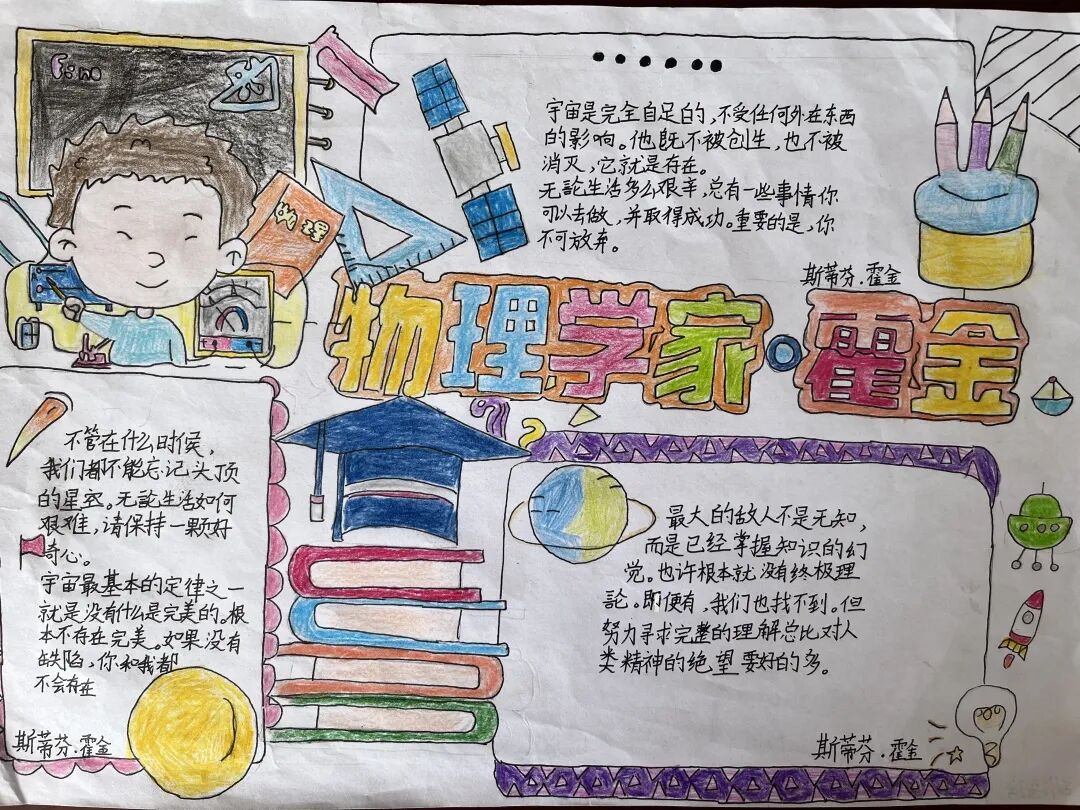 F=ma
物理
宇宙是完全自足的,不受任何外在东西
的影响。他既不被创生,也不被
消灭,它就是存在。
无論生活多么艰辛,总有一些事情你
可以去做,并取得成功。重要的是,你
不可放弃。
斯蒂芬.霍金
物理学家·霍金
不管在什么时候,
我们都不能忘记头顶
的星空。无論生活如何
艰难,请保持一颗好
奇心。
宇宙最基本的定律之一
就是没有什么是完美的。根
本不存在完美。如果没有
缺陷,你和我都
不会存在
斯蒂芬.霍金
最大的敌人不是无知,
而是已经掌握知识的幻
觉。也许根本就没有终极理
論。即便有,我们也找不到。但
努力寻求完整的理解总比对人
类精神的绝望要好的多。
斯蒂芬.霍金